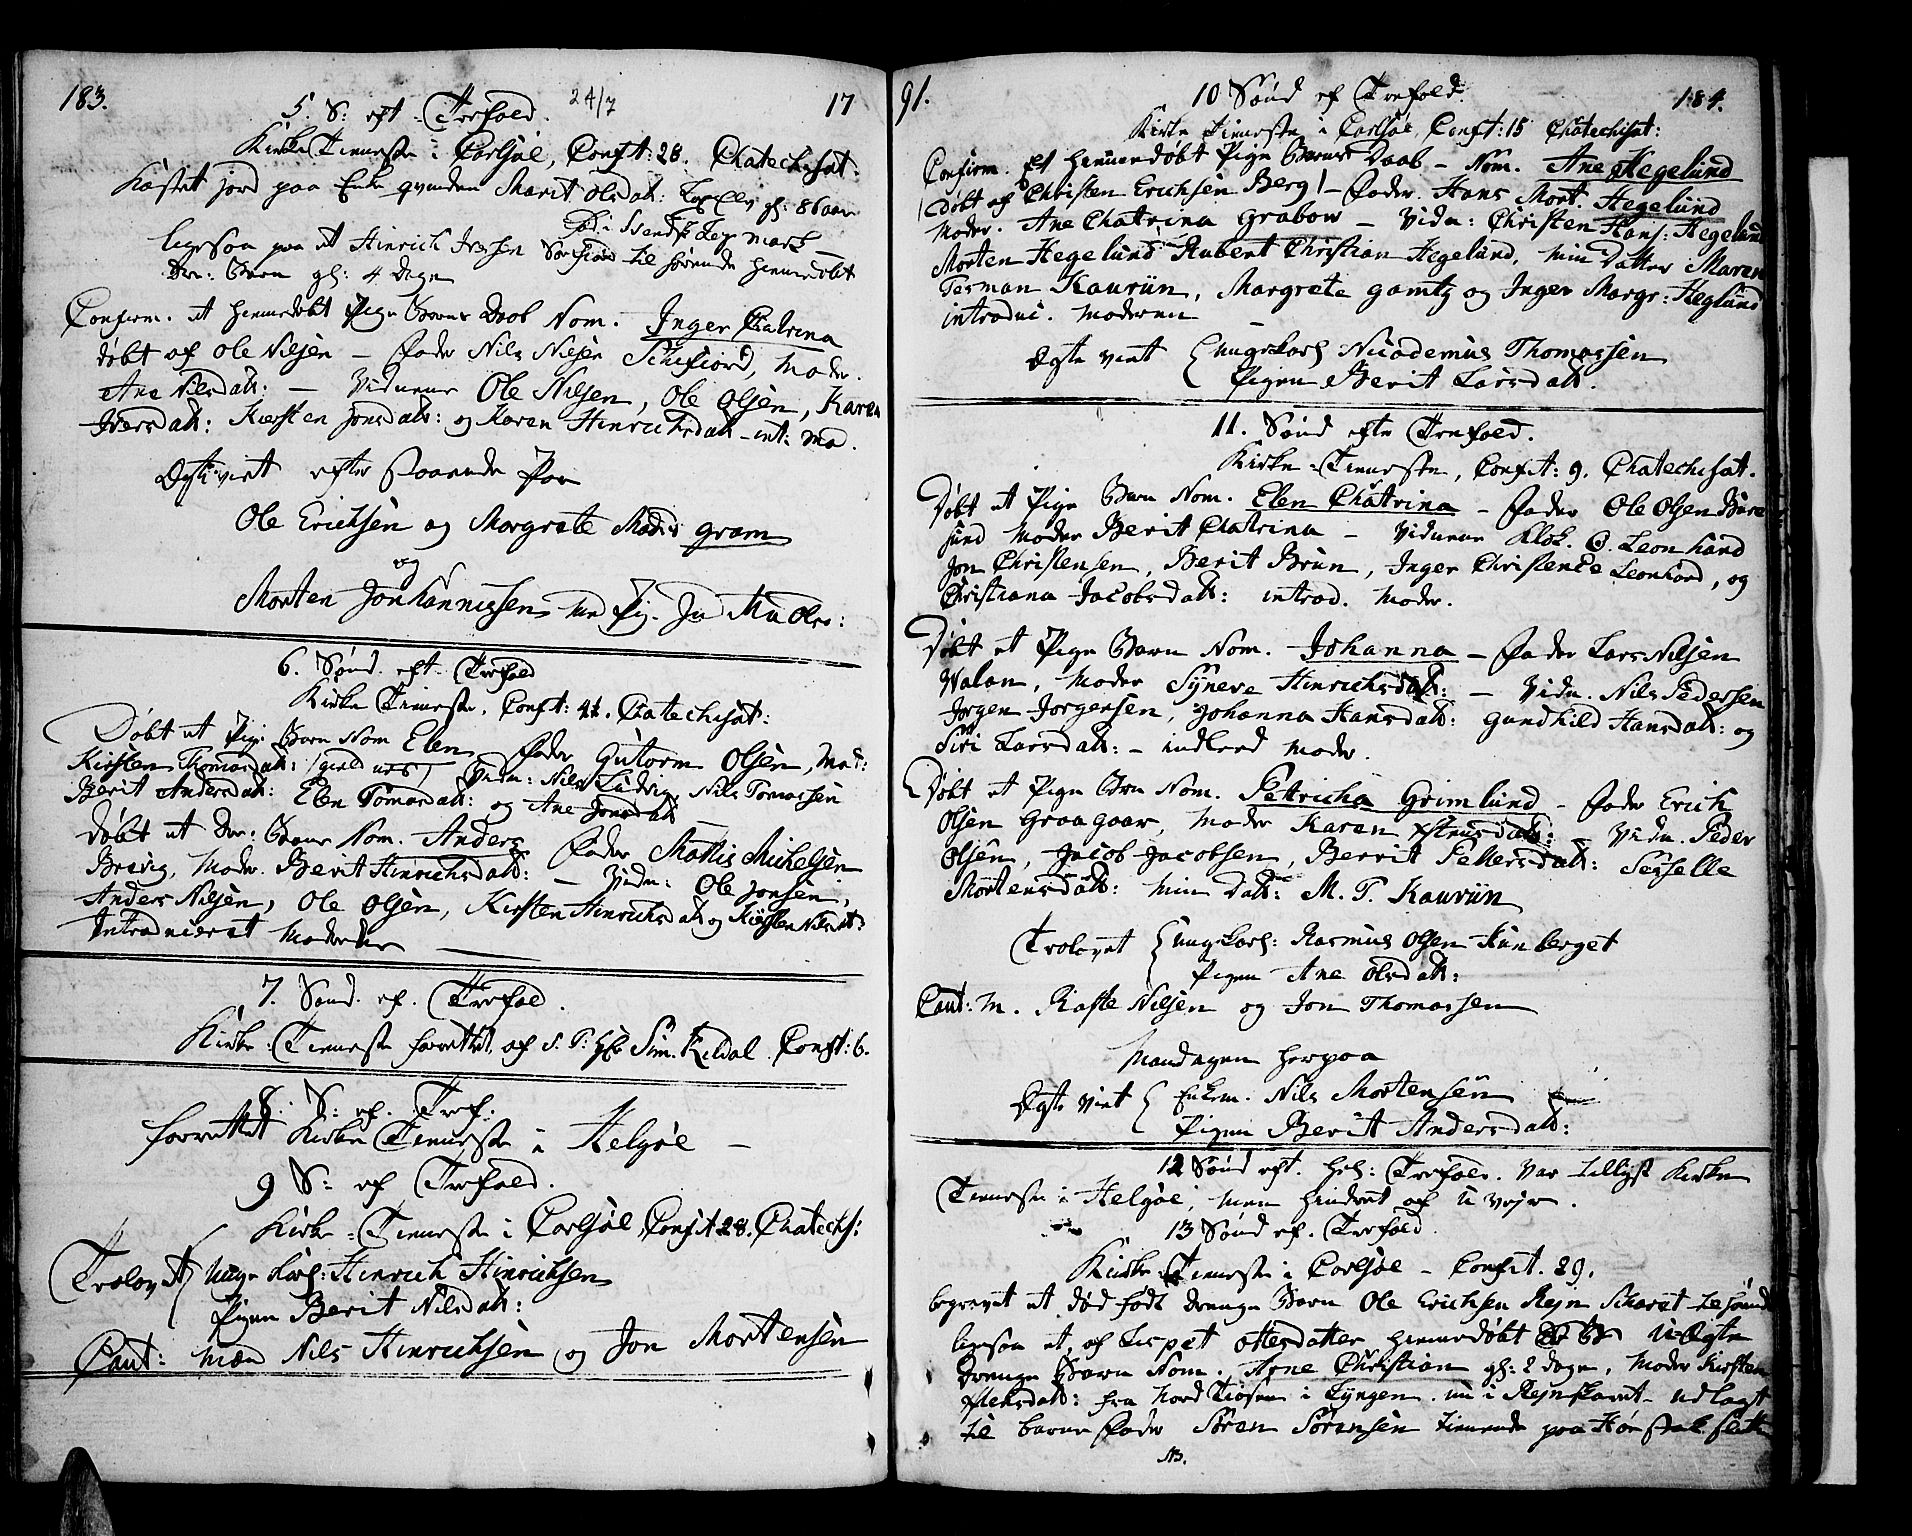 183. 24/7 17
5. S: eft: Trefold.
Kirke Tieneste i Carlsøe, Conft: 28. Chatechisat:
Kastet jord paa Enke qvinden Marit Olsdat: gl: 86 aar
ligesaa paa et Hinrich Iversen til hørende hiemedøbt
Dr: Barn gl: 4 Dage
Confirm. et hiemedøbt Pige Barns Daab Nom. Inger Chatrina
døbt af Ole Nilsen – Fader Nils Nilsen Schifiord, Moder.
Ane Nilsdat: – Vidnerne Ole Nilsen, Ole Olsen, Karen
Iversdat: Kiersten Jonsdat: og Karen Hinrichsdat – int: Mod.
Ægte viet efter staaende Par
Ole Erichsen og Margrete Mads gram
og
Morten Johannissen med Pig.
6. Sønd. eft. Trefold
Kirke Tieneste, Conft: 41. Chatechisat:
Døbt et Pige Barn Nom Elen Fader Gutorm Olsen, Mod:
Kirsten Thomasdat: Vidn: Nils Ludvig, Nils Tomassen
Berit Andersdat: Elen Tomasdat: og Ane Jonsdat
Døbt et Dr: Barn Nom. Anders Fader Mathis Michelsen
Breivig, Moder. Berit Hinrichsdat: – Vidn: Ole Jonsen,
Anders Nilsen, Ole Olsen, Kirsten Hinrichsdat og Kirsten Nilsdat:
Introducieret Moderen
7. Sønd. ef. Trefold.
Kirke Tieneste forrettet af S. T: Hr Sim. Kildal Conft: 6.
8. S: ef. Tref:
forrettet Kirke Tieneste i Helgøe –
9 S: ef Trefold.
Kirke Tieneste i Carlsøe, Confit 28. Chatechs:
Trolovet Unge Karl: Hinrich Hinrichsen
Pigen Berit Nilsdat:
Caut: Mæn Nils Hinrichsen og Jon Mortensen
91. 184.
10 Sønd ef Trefold.
Kirke Tieneste i Carlsøe, Conft: 15 Chatechisat:
Confirm. et hiemedøbt Pige Barns Daab – Nom. Ane Hegelund
døbt af Christen Erichsen Berg – Fader. Hans Mort. Hegelund
Moder. Ane Chatrina Grabow – Vidn: Christen Hans: Hegelund
Morten Hegelund Rubert Christian Hegelund, min Datter Maren
Terman Kaurün, Margrete Gamtz og Inger Margr: Heglund
introduc. Moderen –
Ægte viet Ungkarl Nicodemus Thomassen
Pigen Berit Larsdat.
11. Sønd efte Trefold.
Kirke Tieneste, Confit: 9. Chatechisat.
Døbt et Pige Barn Nom. Elen Chatrina – Fader Ole Olsen Bure
sund Moder Berit Chatrina – Vidnerne Klok. O. Leonhard
Jon Christensen, Berit Brun, Inger Christence Leonhard, og
Christiana Jacobsdat: introd. Moder.
Døbt et Pige Barn Nom. Johanna – Fader Lars Nilsen
Walan, Moder Synere Hinrichsdat: – Vidn. Nils Pedersen
Jørgen Jørgensen, Johanna Hansdat: Gundhild Hansdat: og
Siri Larsdat: – indleed Moder.
Døbt et Pige Brn Nom. Pettricha Grimlund – Fader Erich
Olsen Graagaar, Moder Karen – Vidn. Peder
Olsen, Jacob Jacobsen, Berrit Pettersdat: Sesselle
Mortensdat: min Dat: M. T. Kaurün
Trolovet Ungkarl: Rasmus Olsen Kunberget
Pigen Ane Olsdat:
Caut: M. Raste Nilsen og Jon Thomassen
Mandagen herpaa
Ægte viet Enkem. Nils Mortensen
Pigen Berit Andersdat:
12 Sønd eft. hel: Trefold. Var tillyst Kirke
Tieneste i Helgøe, men hindret af u vejr.
13 Sønd ef. Trefold
Kirke Tieneste i Carlsøe – Confit. 29.
begravet et død født drenge Barn Ole Erichsen Rejn Scharet tilhørend
ligesaa et, af Lispet Ottesdatter hiemedøbt U-Ægte
Drenge Barn Nom. Arne Christian gl: 2 dage, Moder Kirsten
fra Nord Kiosen i Lyngen. nu i Rejnskaret – udlagt
til barne Fader Søren Sørensen tienende paa
NB.